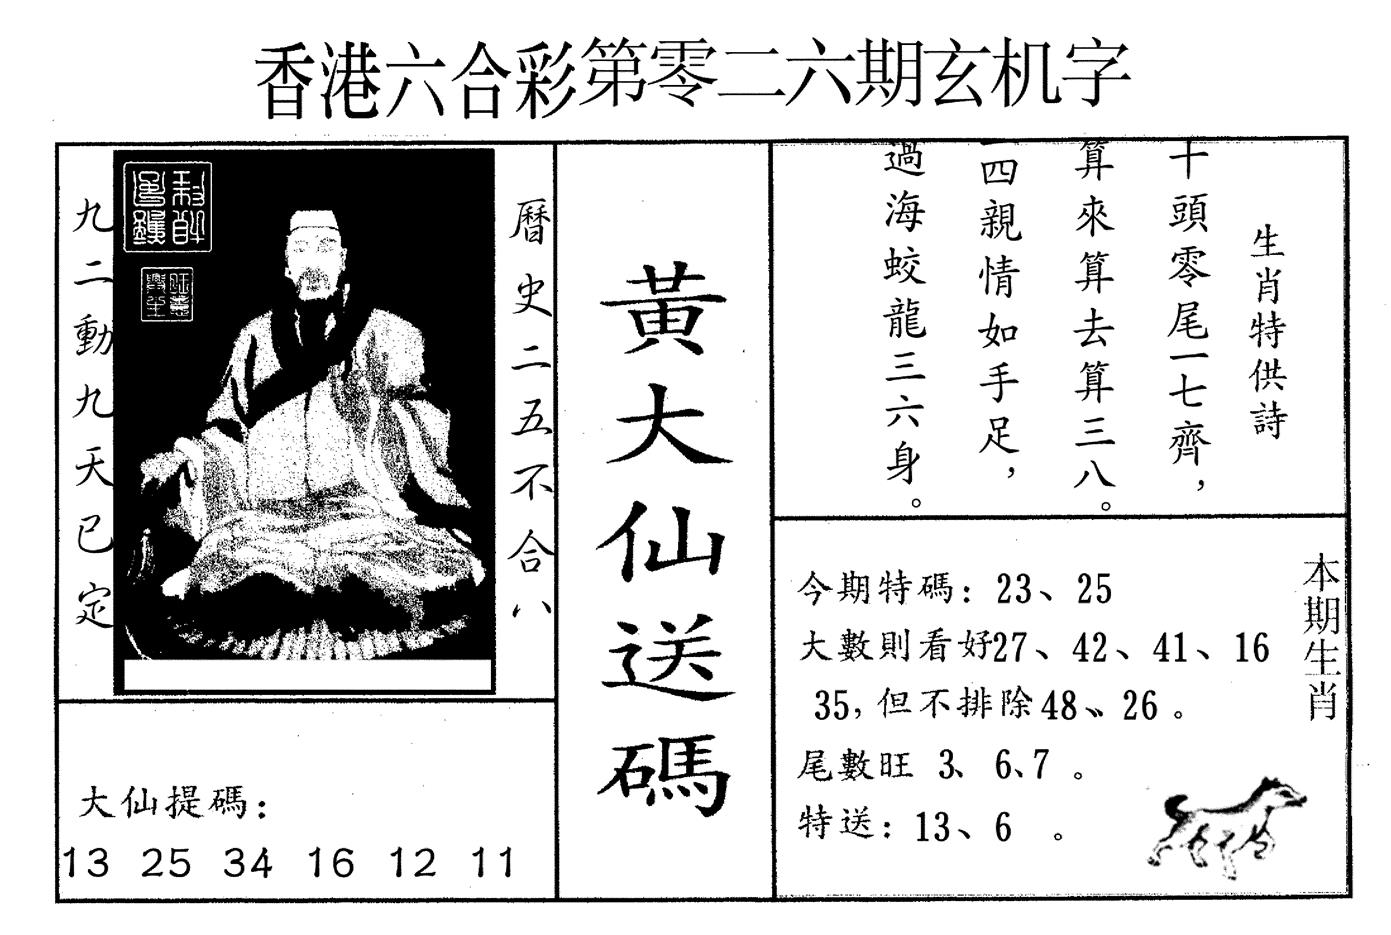 香港六合彩第零二六期玄机字
曆史二五不合八
九二動九天已定
大仙提碼:
13 25 34 16 12 11
黃大仙送碼
生肖特供詩
十頭零尾一七齊,
算來算去算三八。
四親情如手足,
過海蛟龍三六身。
本期生肖
今期特碼: 23、25
大數則看好27、42、41、16
35,但不排除48、26。
尾數旺 3、6、7。
特送: 13、6 。